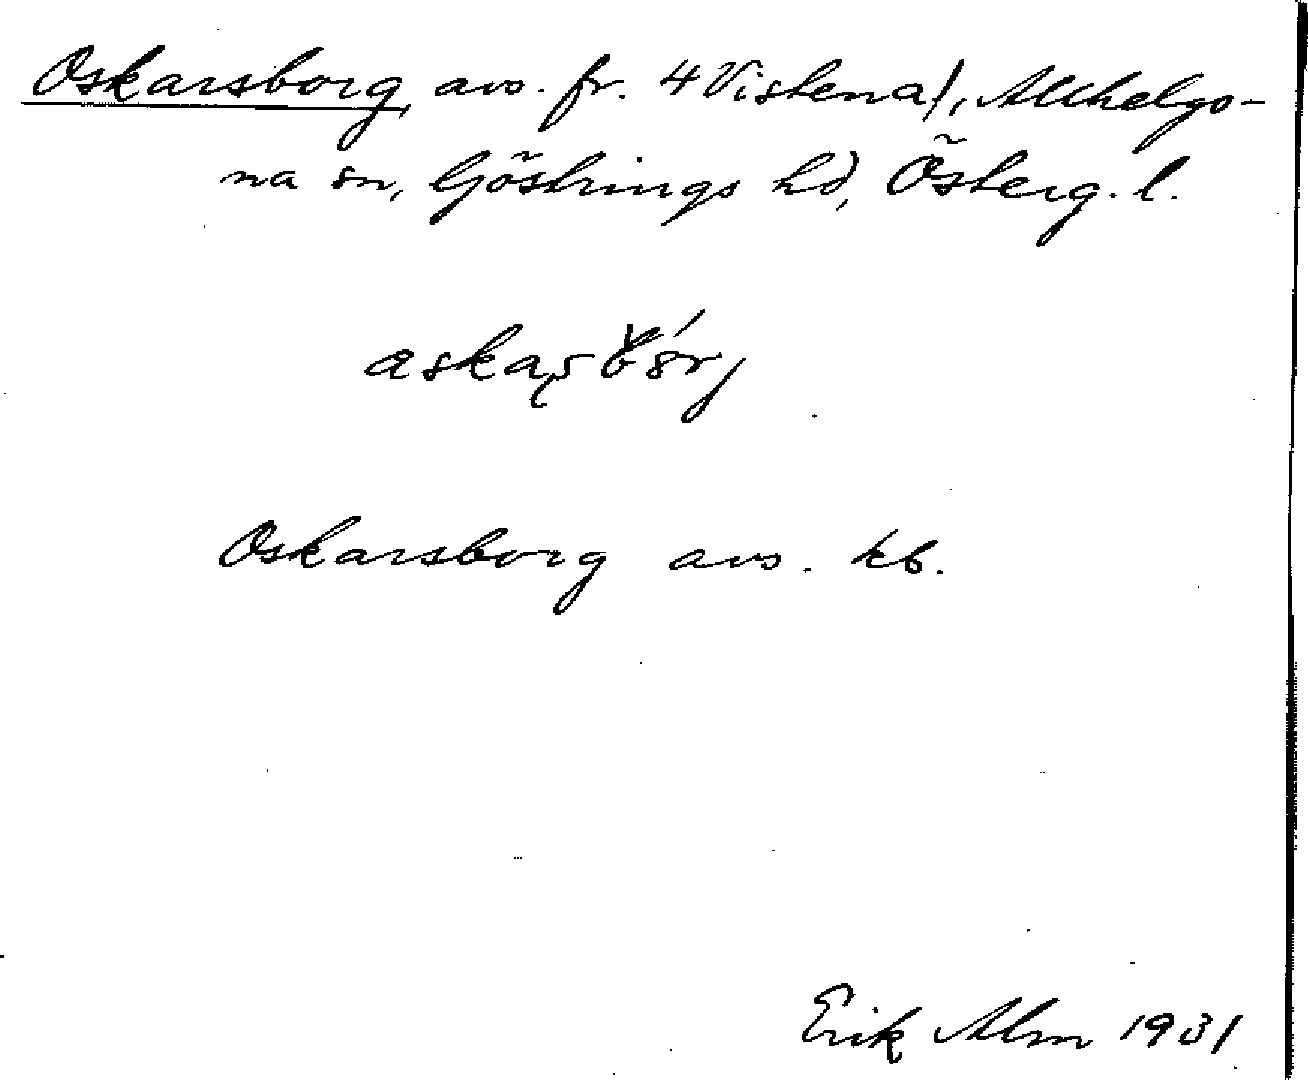 Oskarsborg, avs. fr. 4 Vistena/, Allhelgo-
na sn, Göstrings hd, Österg. l.
Oskarsborg avs. kb.
Erik Alm 1931